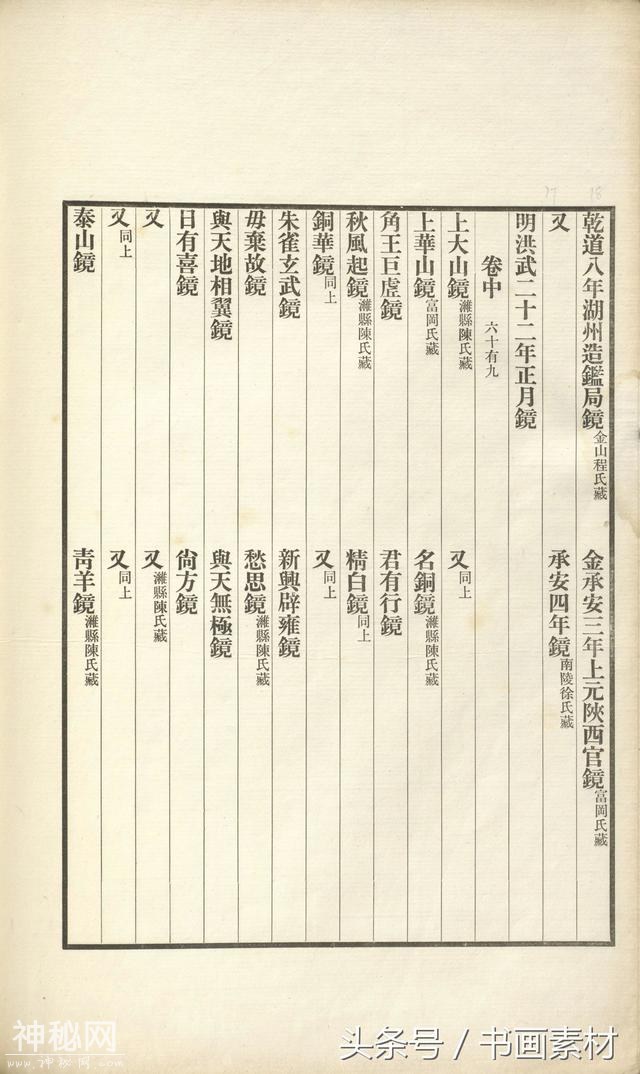 乾道八年湖州造鑑局鏡金山程氏藏 金承安三年上元陝西官鏡富岡氏藏
又 承安四年鏡南陵徐氏藏
明洪武二十二年正月鏡
卷中 六十有九
上大山鏡濰縣陳氏藏 又同上
上華山鏡富岡氏藏 名銅鏡濰縣陳氏藏
角王巨虛鏡 君有行鏡
秋風起鏡濰縣陳氏藏 精白鏡同上
銅華鏡同上 又同上
朱雀玄武鏡 新興辟雍鏡
毋棄故鏡 愁思鏡濰縣陳氏藏
與天地相翼鏡 與天無極鏡
日有喜鏡 尙方鏡
又 又濰縣陳氏藏
又同上 又同上
泰山鏡 靑羊鏡濰縣陳氏藏
17 18
神秘网
www.神秘网.com
头条号 / 书画素材